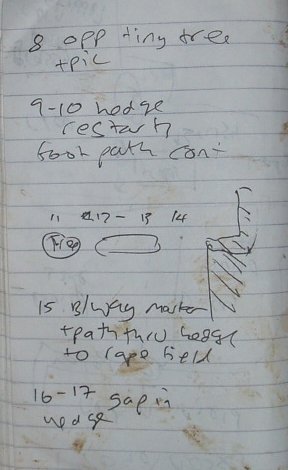 8 opp tiny tree
+pic
9-10 hedge
restarts
foot path cont
11 12- 13 14
Tree
15 B/way marker
+path thru hedge
to rape field
16-17 gap in
hedge